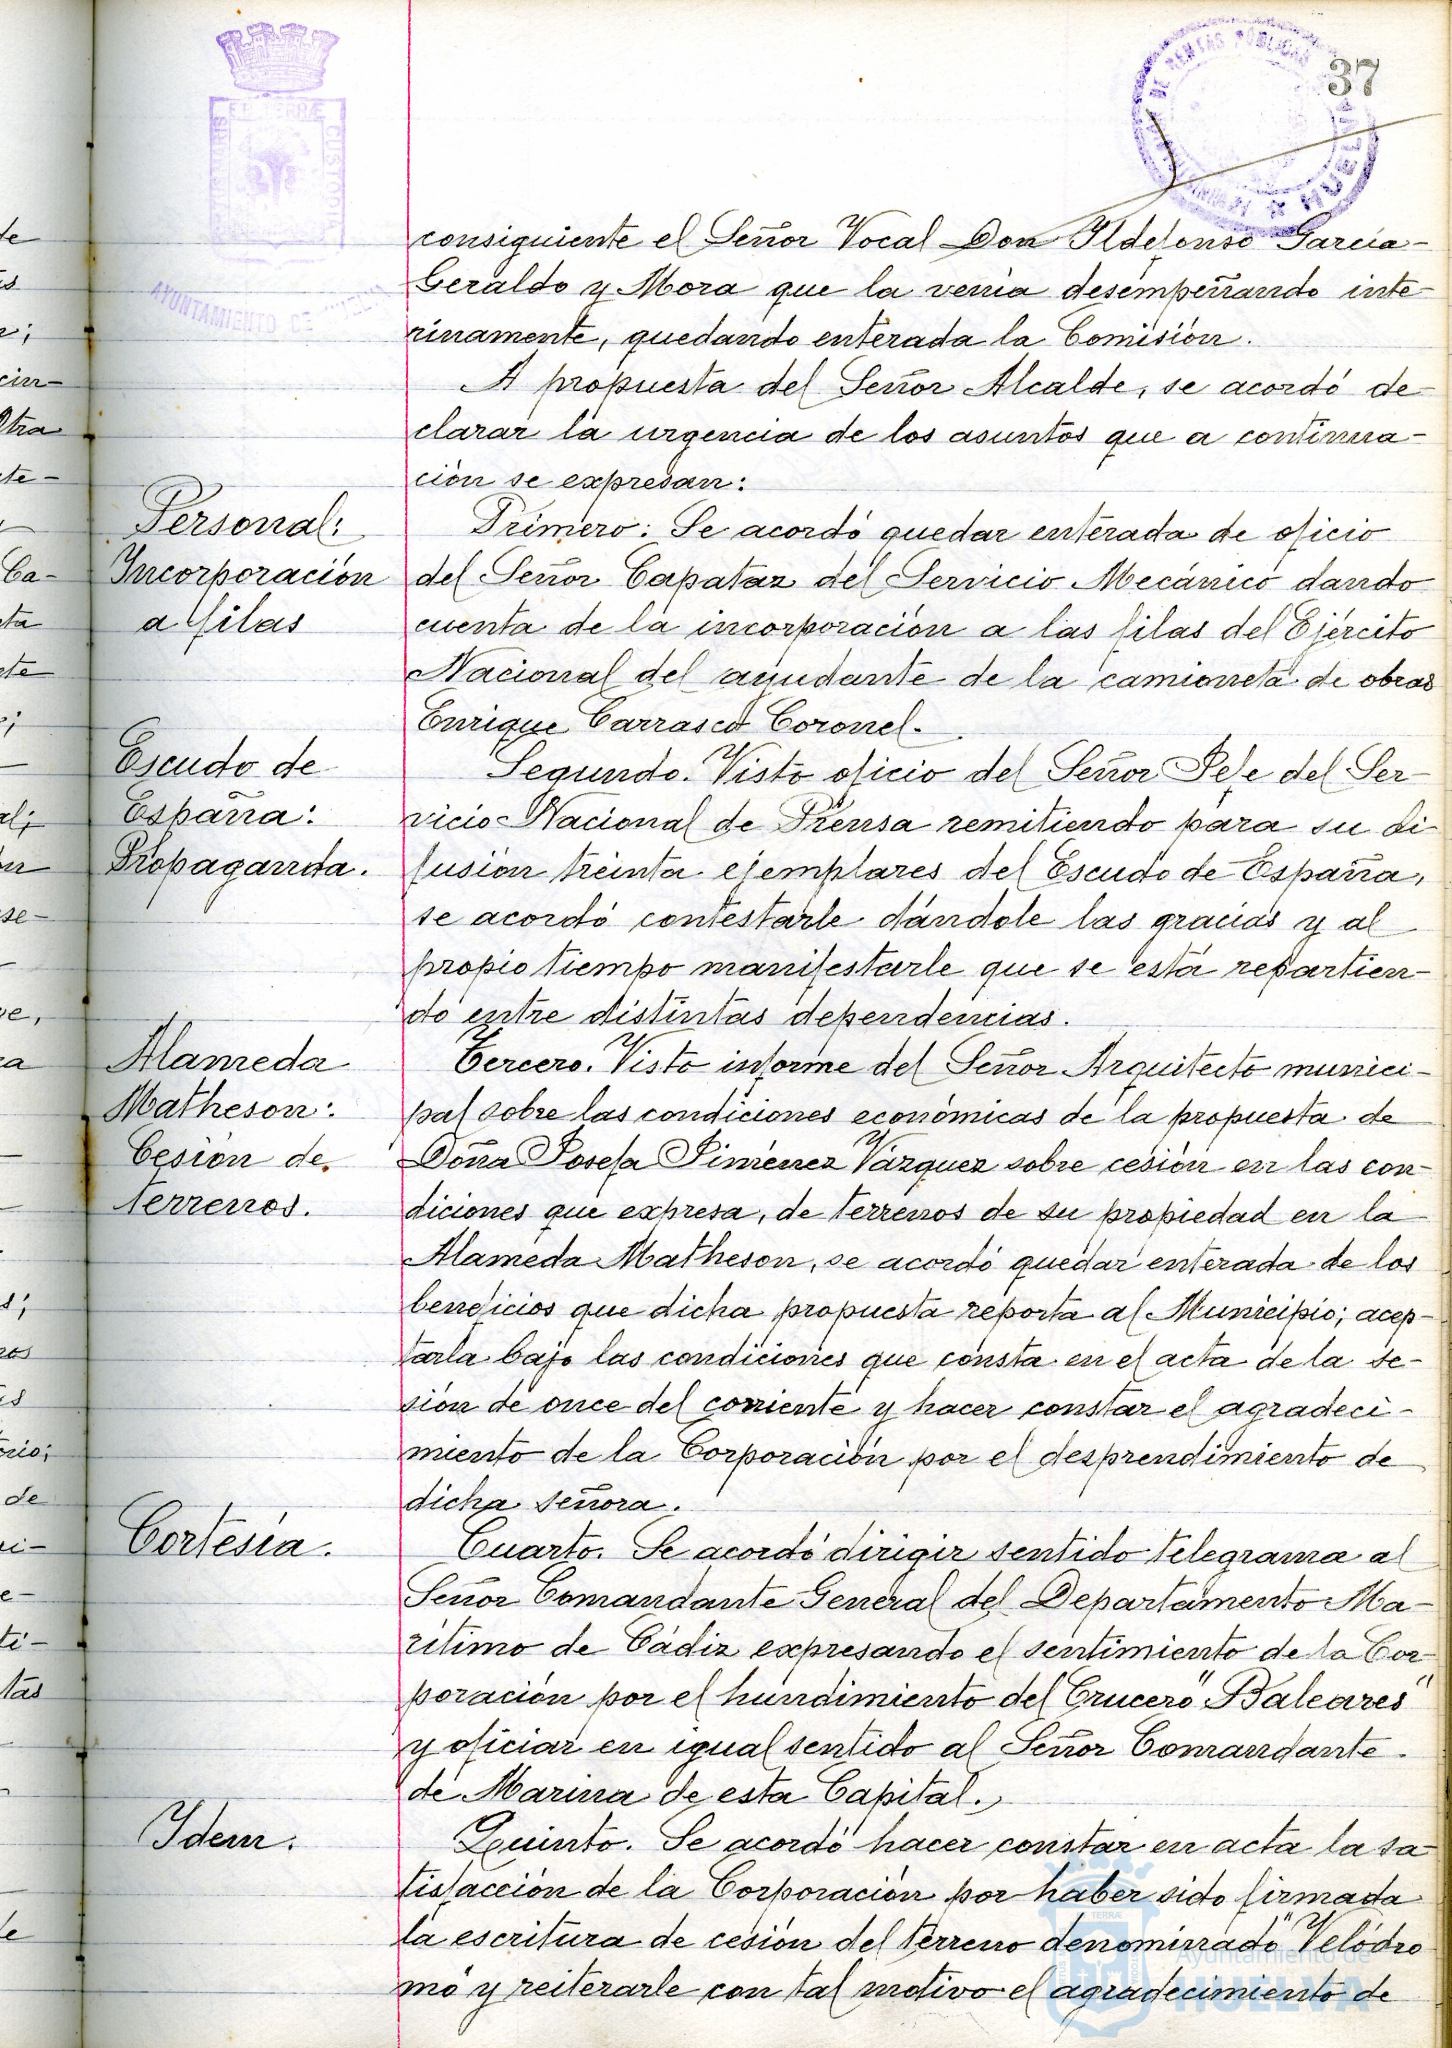 37
AYUNTAMIENTO DE
HUELVA
consiguiente el Señor Vocal Don Ildefonso García-
Geraldo y Mora que la venía desempeñando inte-
rinamente, quedando enterada la Comisión.
A propuesta del Señor Alcalde, se acordó de-
clarar la urgencia de los asuntos que a continua-
ción se expresan:
Personal:
Incorporación
a filas
Primero: Se acordó quedar enterada de oficio
del Señor Capataz del Servicio Mecánico dando
cuenta de la incorporación a las filas del Ejército
Nacional del ayudante de la camioneta de obras
Enrique Carrasco Coronel.
Escudo de
España:
Propaganda.
Segundo. Visto oficio del Señor Jefe del Ser-
vicio Nacional de Prensa remitiendo para su di
fusión treinta ejemplares del Escudo de España,
se acordó contestarle dándole las gracias y al
propio tiempo manifestarle que se está repartien-
do entre distintas dependencias.
Alameda
Matheson:
Cesión de
terrenos.
Tercero. Visto informe del Señor Arquitecto munici-
pal sobre las condiciones económicas de la propuesta de
Doña Josefa Jiménez Vázquez sobre cesión en las con-
diciones que expresa, de terrenos de su propiedad en la
Alameda Matheson, se acordó quedar enterada de los
beneficios que dicha propuesta reporta al Municipio; acep-
tarla bajo las condiciones que consta en el acta de la se-
sión de once del corriente y hacer constar el agradeci-
miento de la Corporación por el desprendimiento de
dicha señora.
Cortesía.
Cuarto. Se acordó dirigir sentido telegrama al
Señor Comandante General del Departamento Ma-
rítimo de Cádiz expresando el sentimiento de la Cor-
poración por el hundimiento del Crucero "Baleares"
y oficiar en igual sentido al Señor Comandante
de Marina de esta Capital.
Idem.
Quinto. Se acordó hacer constar en acta la sa-
tisfacción de la Corporación por haber sido firmada
la escritura de cesión del terreno denominado "Velódro
mo y reiterarle con tal motivo el agradecimiento de
Ayuntamiento de
HUELVA